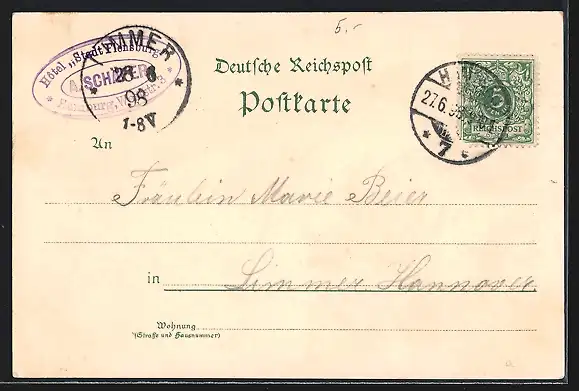 5.-
Hôtel „Stadt Flensburg"
SCHÄFER
MMER
28 6
98
1-8V
Deutsche Reichspost
Postkarte
H
27.6.98
* 7 c *
5
REICHSPOST
An
Fräulein Marie Beier
in Limmer Hannover.
Wohnung
(Straße und Hausnummer)